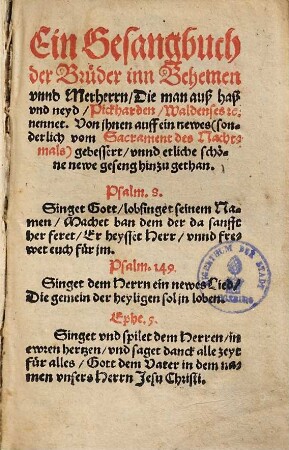 Ein Gesangbuch
der Brüder inn Behemen
vnnd Merherrn/Die man auß haß
vnd neyd/Pickharden/Waldenses ꝛc.
nennet. Von jhnen auff ein newes(son-
derlich vom Sacrament des Nacht-
mals) gebessert/vnnd etliche schö-
ne newe geseng hinzu gethan.
Psalm. 8.
Singet Gott/lobsinget seinem Na-
men/Machet ban dem der da sanfft
her feret/Er heysset Herr/vnnd fre-
wet euch für jm.
Psalm. 149.
Singet dem Herrn ein newes Lied/
Die gemein der heyligen sol jn loben.
Ephe. 5.
Singet vnd spilet dem Herren/in
ewren hertzen/vnd saget danck alle zeyt
für alles/Gott dem Vater in dem na-
men vnsers Herrn Jesu Christi.